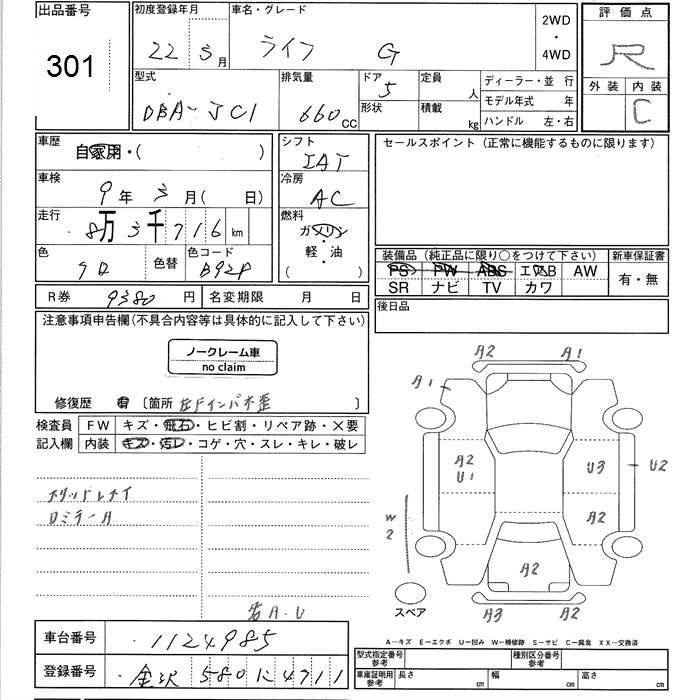 出品番号
301
初度登録年月
22 3月
車名・グレード
ライフ G
2WD
・
4WD
評価点
R
外装 内装
C
型式
DBA-JC1
排気量
660cc
ドア
5
形状
定員
人
積載
kg
ディーラー・並 行
モデル年式 年
ハンドル 左・右
車歴
自家用・( )
シフト
IAT
セールスポイント（正常に機能するものに限ります）
車検
9年 3月( 日)
冷房
AC
走行
8万3千716km
燃料
ガソリン
・
軽・油
( )
色
クロ
色替
色コード
B92P
装備品（純正品に限り○をつけて下さい）
新車保証書
PS PW ABS エアB AW
SR ナビ TV カワ
有・無
R券 9380円
名変期限 月 日
後日品
注意事項申告欄(不具合内容等は具体的に記入して下さい)
ノークレーム車
no claim
修復歴 有 〔箇所 左Fインパネ歪 〕
検査員
記入欄
FW キズ・飛石・ヒビ割・リペア跡・×要
内装 キズ・汚レ・コゲ・穴・スレ・キレ・破レ
A2 A1
A1
A2
U1
U3
U2
A2
W
2
A2
A3 A2
スペア
A・U
A－キズ E－エクボ U－凹み W－補修跡 S－サビ C－腐食 XX－交換済
車台番号
1124985
登録番号
金沢 580 に 4711
型式指定番号
参考
種別区分番号
参考
車庫証明用
参考
長さ cm
幅 cm
高さ cm